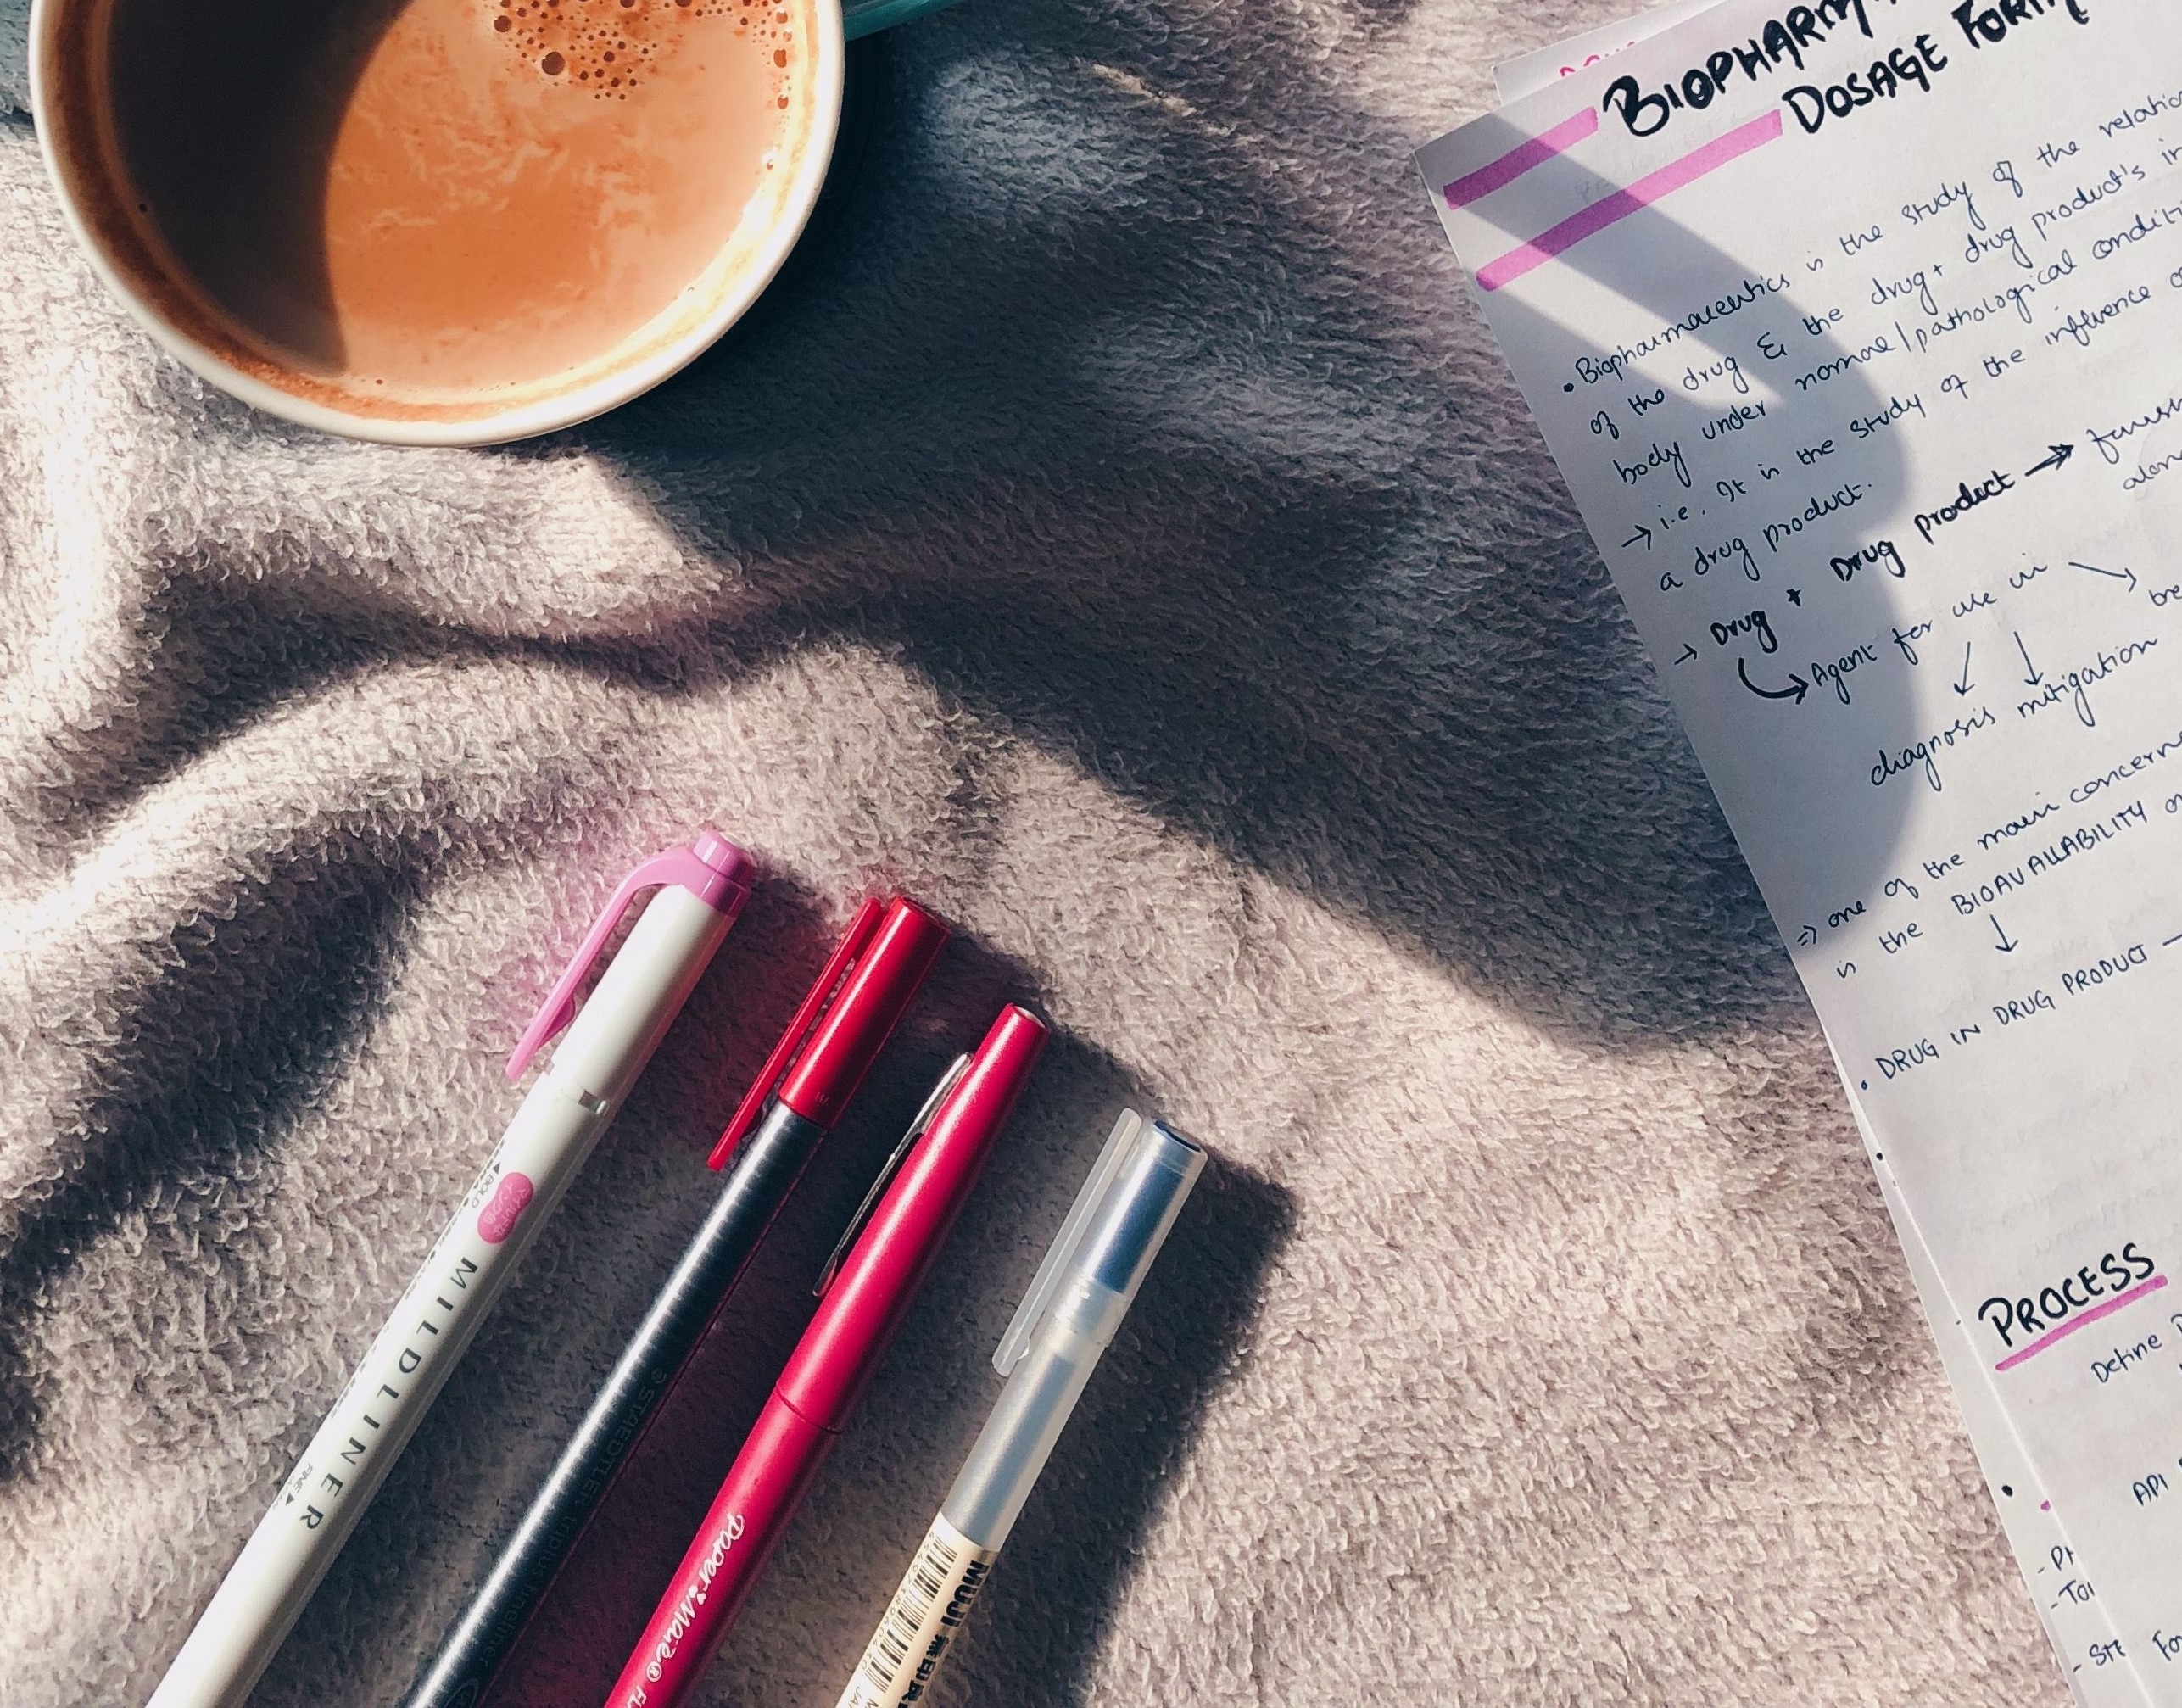 BIOPHARM
DOSAGE FORM
• Biopharmaceutics is the study of the relatio
of the drug & the drug + drug product's in
body under normal / pathological conditi
→ i.e. It is the study of the influence o
a drug product.
→ Drug + Drug product →
Agent for use in
diagnosis mitigation
⇒ one of the main concern
is the BIOAVAILABILITY o
• DRUG IN DRUG PRODUCT
PROCESS
Define
API
- PH
- STE
MILDLINER
BOLD
FINE
STAEDTLER triplus fineliner
Paper Mate®
MUJI